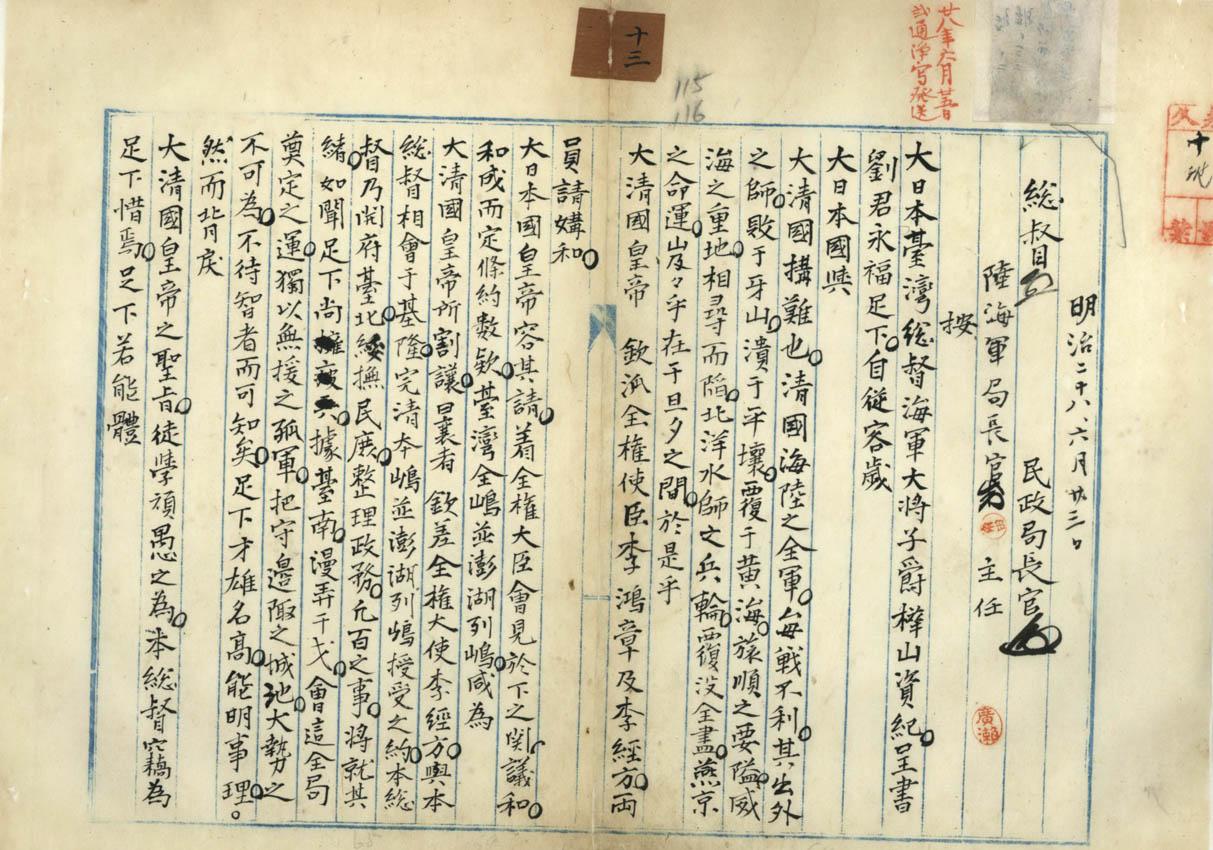 十三
廿八年六月廿五日
弐通淨写発送
115
116
明治二十八 六月廿三日
総督 民政局長官
陸海軍局長官 主任 廣瀬
按
大日本臺灣総督海軍大将子爵樺山資紀呈書
劉君永福足下。自従客歳
大日本國與
大清國搆難也。清國海陸之全軍。毎戦不利。其出外
之師。敗于牙山。潰于平壤。覆于黄海。旅順之要隘。威
海之重地。相尋而陥。北洋水師之兵輪。覆没全盡。燕京
之命運。岌々乎在于旦夕之間。於是乎
大清國皇帝 欽派全権使臣李鴻章及李経方。両
員請媾和。
大日本國皇帝容其請。着全権大臣會見於下之関。議和。
和成而定條約数欵。臺灣全嶋並澎湖列嶋。咸為
大清國皇帝所割讓。曩者 欽差全権大使李経方。與本
総督相會于基隆。完清本嶋並澎湖列嶋授受之約。本総
督乃開府臺北。綏撫民庶。整理政務。凢百之事。將就其
緒。如聞足下尚據臺南。漫弄干戈。會這全局
奠定之運。獨以無援之孤軍。把守邊陬之城池。大勢之
不可為。不待智者而可知矣。足下才雄名高。能明事理。
然而背戻
大清國皇帝之聖旨。徒學頑愚之為。本総督窃為
足下惜焉。足下若能體